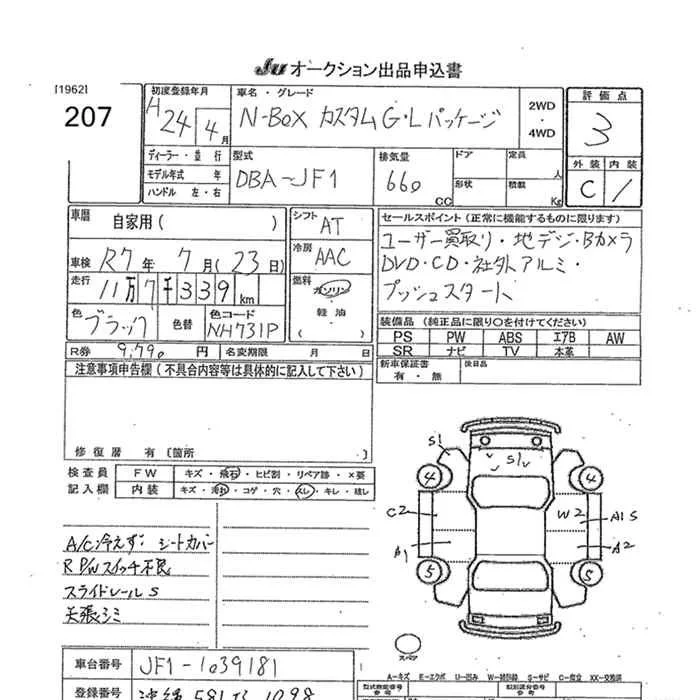 JU オークション出品申込書
[1962]
207
初度登録年月
H 24 4月
車名・グレード
N-BOX カスタム G・Lパッケージ
2WD
・
4WD
評価点
3
外装 内装
C /
ディーラー・並行
モデル年式 年
ハンドル 左・右
型式
DBA-JF1
排気量
660 CC
ドア
定員 人
形状
積載 Kg
車歴 自家用( )
車検 R7年 7月(23日)
走行 11万7千339km
色 ブラック
色替
色コード NH731P
シフト AT
冷房 AAC
燃料 ガソリン
軽油
( )
セールスポイント(正常に機能するものに限ります)
ユーザー買取り・地デジ・Bカメラ
DVD・CD・社外アルミ・
プッシュスタート
装備品(純正品に限り○を付けてください)
PS PW ABS エアB AW
SR ナビ TV 本革
R券 9,790 円 名変期限 月 日
新車保証書
有・無
後日品
注意事項申告欄(不具合内容等は具体的に記入して下さい)
修復歴 有〔箇所 〕
検査員
記入欄
FW キズ・飛石・ヒビ割・リペア跡・×要
内装 キズ・汚れ・コゲ・穴・スレ・キレ・破し
A/C冷えず; シートカバー
R P/Wスイッチ不良
スライドレール S
天張シミ
S1
S1
4
4
C2
W2
A1 S
B1
A2
5
5
スペア
A-キズ E-エクボ U-凹み S-サビ C-腐食 XX-交換済
車台番号 JF1-1039181
登録番号 沖縄 581